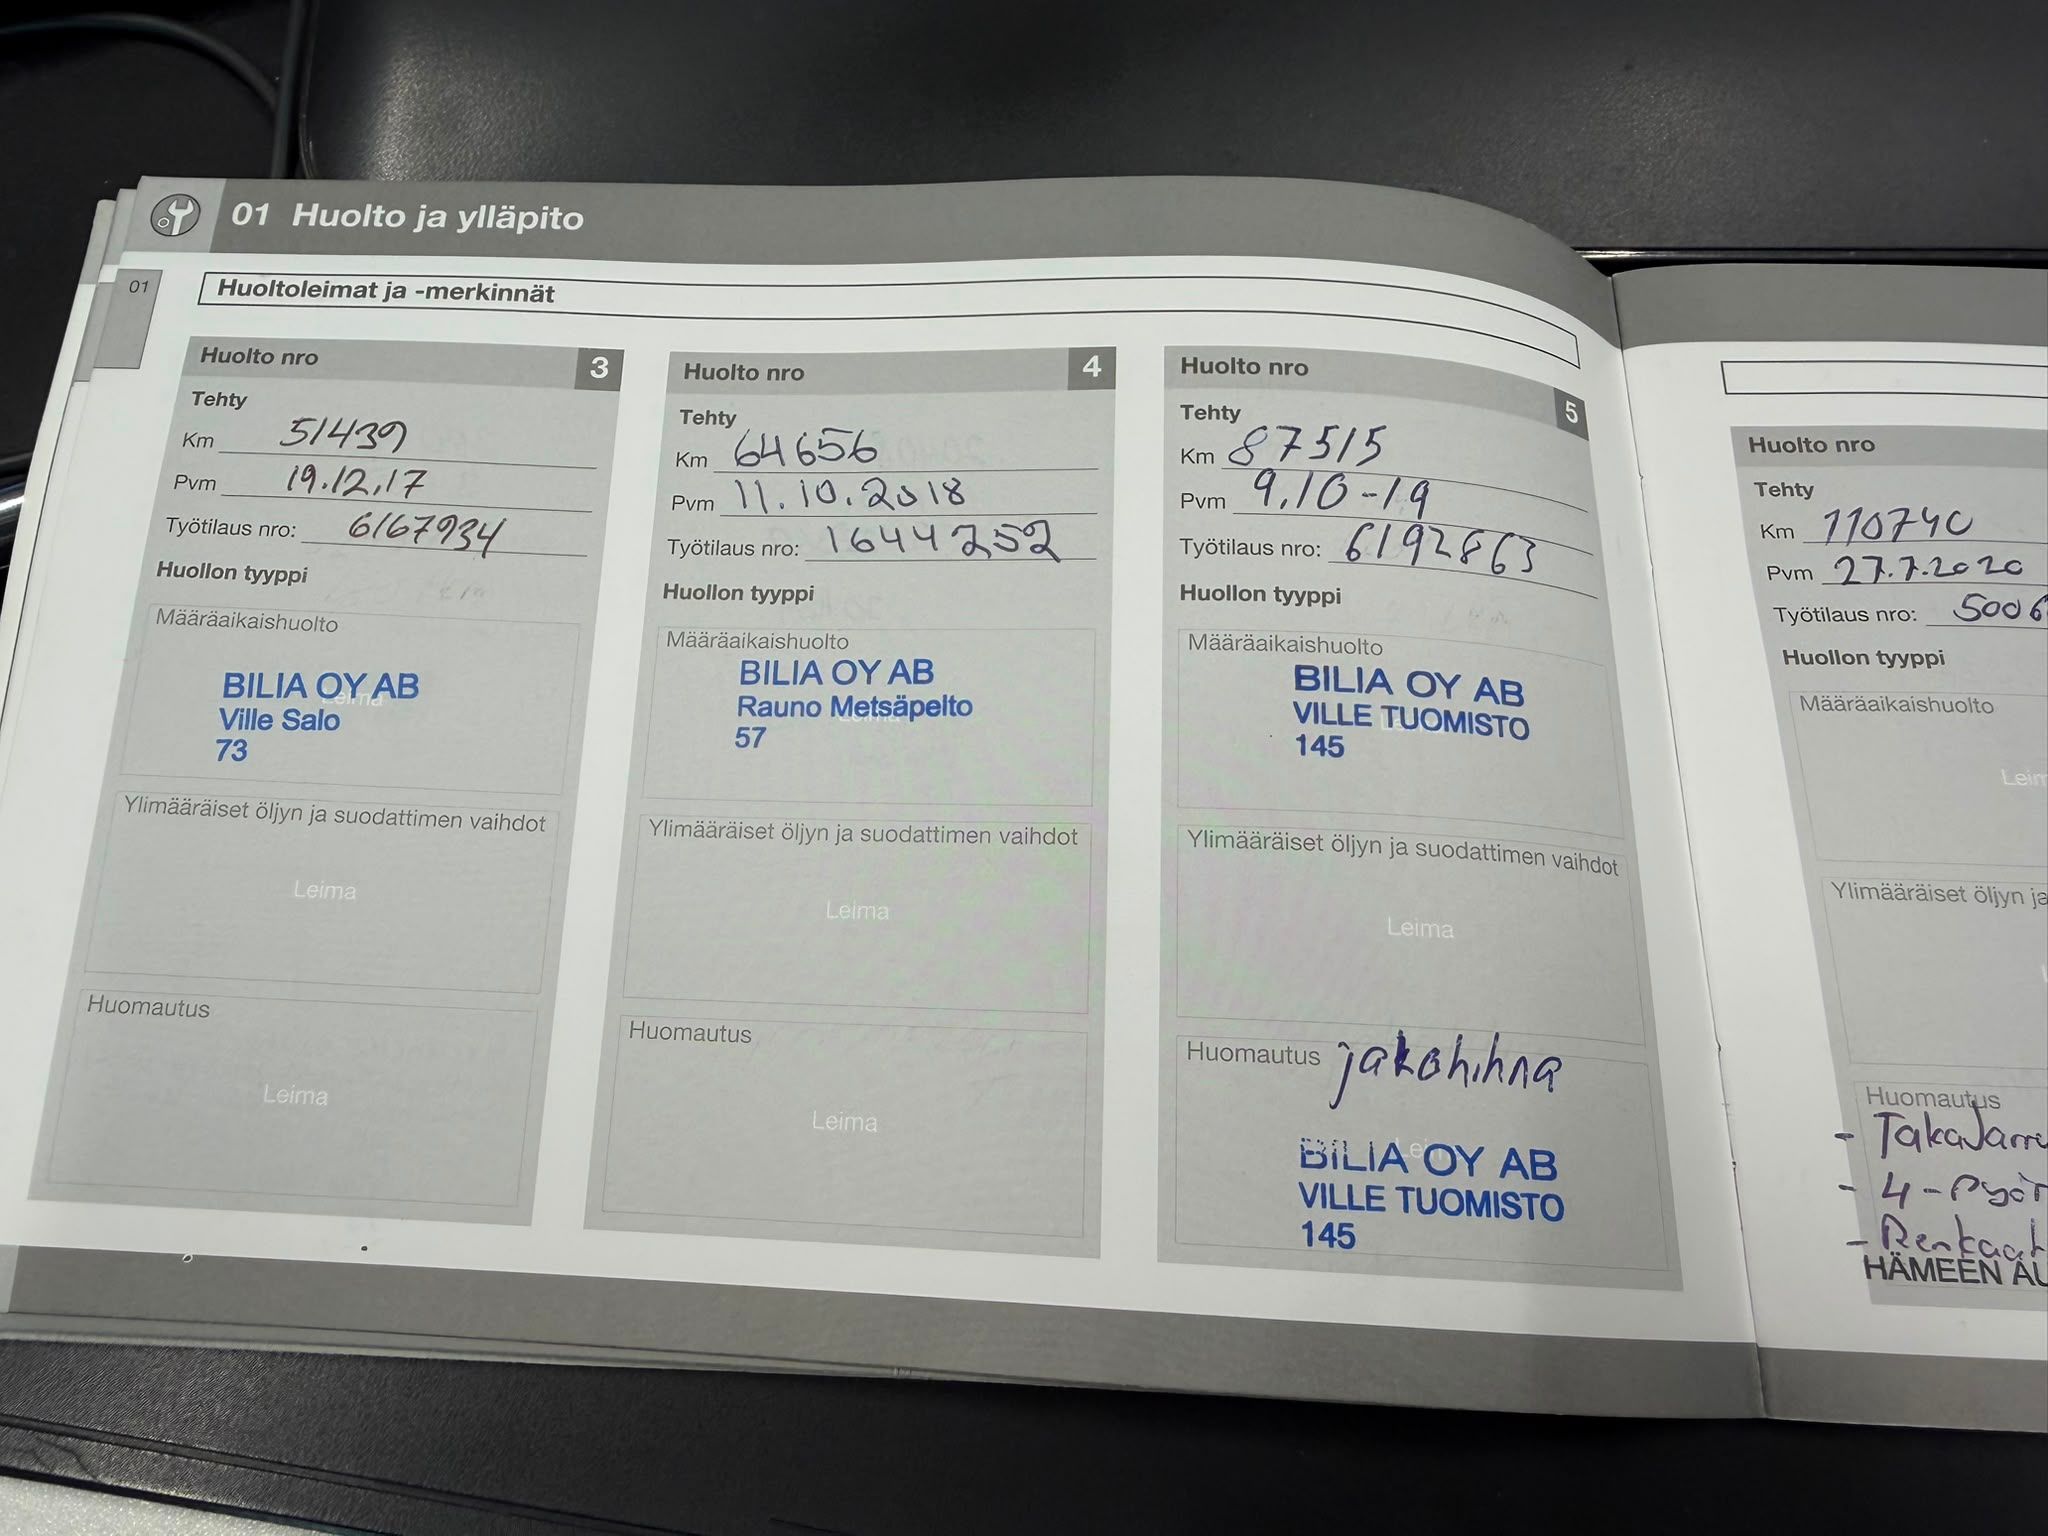 01 Huolto ja ylläpito
01
Huoltoleimat ja -merkinnät
Huolto nro 3
Tehty
Km 51439
Pvm 19.12.17
Työtilaus nro: 6167934
Huollon tyyppi
Määräaikaishuolto
Leima
BILIA OY AB
Ville Salo
73
Ylimääräiset öljyn ja suodattimen vaihdot
Leima
Huomautus
Leima
Huolto nro 4
Tehty
Km 64656
Pvm 11.10.2018
Työtilaus nro: 1644252
Huollon tyyppi
Määräaikaishuolto
BILIA OY AB
Rauno Metsäpelto
57
Ylimääräiset öljyn ja suodattimen vaihdot
Leima
Huomautus
Leima
Huolto nro 5
Tehty
Km 87515
Pvm 9.10-19
Työtilaus nro: 6192863
Huollon tyyppi
Määräaikaishuolto
BILIA OY AB
VILLE TUOMISTO
145
Ylimääräiset öljyn ja suodattimen vaihdot
Leima
Huomautus jakohihna
BILIA OY AB
VILLE TUOMISTO
145
Huolto nro
Tehty
Km 110740
Pvm 27.7.2020
Työtilaus nro: 5006
Huollon tyyppi
Määräaikaishuolto
Leim
Ylimääräiset öljyn ja
Huomautus
- TakaJarru
- 4-Pyör
- Renkaat
HÄMEEN AU